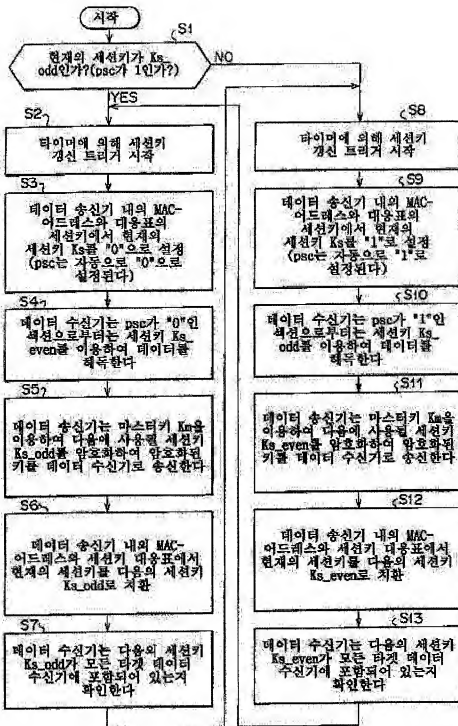 시작
S1
현재의 세션키가 Ks_
odd인가?(psc가 1인가?)
NO
YES
S2
타이머에 의해 세션키
갱신 트리거 시작
S3
데이터 송신기 내의 MAC-
어드레스와 대응표의
세션키에서 현재의
세션키 Ks를 "0"으로 설정
(psc는 자동으로 "0"으로
설정된다)
S4
데이터 수신기는 psc가 "0"인
섹션으로부터는 세션키 Ks_
even를 이용하여 데이터를
해독한다
S5
데이터 송신기는 마스터키 Km을
이용하여 다음에 사용될 세션키
Ks_odd를 암호화하여 암호화된
키를 데이터 수신기로 송신한다
S6
데이터 송신기 내의 MAC-
어드레스와 세션키 대응표에서
현재의 세션키를 다음의 세션키
Ks_odd로 치환
S7
데이터 수신기는 다음의 세션키
Ks_odd가 모든 타겟 데이터
수신기에 포함되어 있는지
확인한다
S8
타이머에 의해 세션키
갱신 트리거 시작
S9
데이터 송신기 내의 MAC-
어드레스와 대응표의
세션키에서 현재의
세션키 Ks를 "1"로 설정
(psc는 자동으로 "1"로
설정된다)
S10
데이터 수신기는 psc가 "1"인
섹션으로부터는 세션키 Ks_
odd를 이용하여 데이터를
해독한다
S11
데이터 송신기는 마스터키 Km을
이용하여 다음에 사용될 세션키
Ks_even를 암호화하여 암호화된
키를 데이터 수신기로 송신한다
S12
데이터 송신기 내의 MAC-
어드레스와 세션키 대응표에서
현재의 세션키를 다음의 세션키
Ks_even로 치환
S13
데이터 수신기는 다음의 세션키
Ks_even가 모든 타겟 데이터
수신기에 포함되어 있는지
확인한다